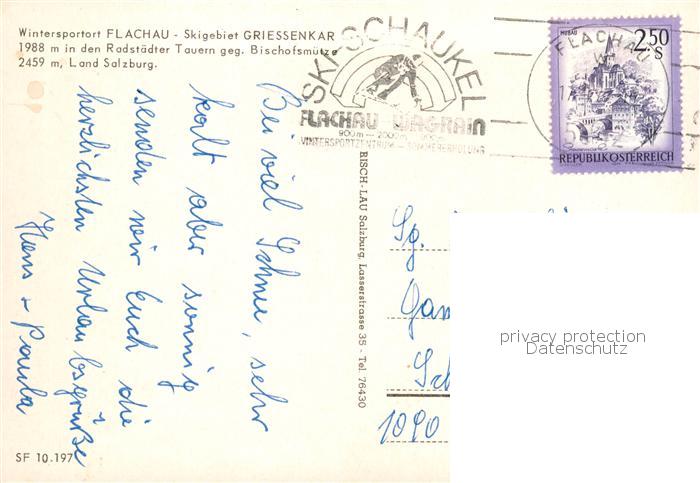 Wintersportort FLACHAU - Skigebiet GRIESSENKAR
1988 m in den Radstädter Tauern geg. Bischofsmütze
2459 m, Land Salzburg.
SKI-SCHAUKEL
FLACHAU WAGRAIN
900m - 2000m
WINTERSPORTZENTRUM - SOMMERERHOLUNG
FLACHAU
MURAU
2.50
S
REPUBLIK ÖSTERREICH
Bei viel Schnee, sehr
kalt aber sonnig
senden wir Euch die
herzlichsten Urlaubsgrüße
Hans + Paula
RISCH-LAU Salzburg, Lasserstrasse 35 - Tel. 76430
Sg.
1090
privacy protection
Datenschutz
SF 10.197